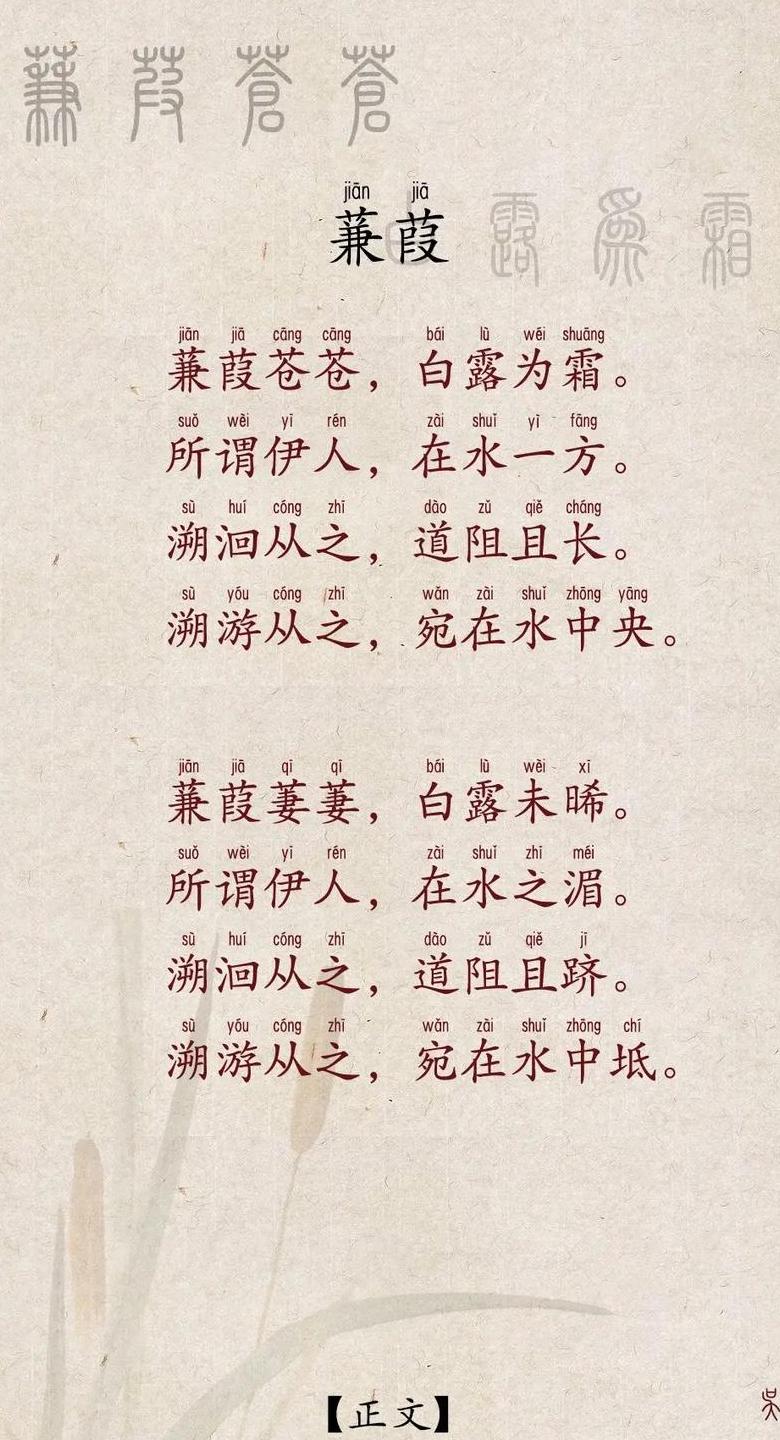 蒹葭蒼蒼
jiān jiā
蒹葭
白露為霜
jiān jiā cāng cāng bái lù wéi shuāng
蒹葭苍苍，白露为霜。
suǒ wèi yī rén zài shuǐ yì fāng
所谓伊人，在水一方。
sù huí cóng zhī dào zǔ qiě cháng
溯洄从之，道阻且长。
sù yóu cóng zhī wǎn zài shuǐ zhōng yāng
溯游从之，宛在水中央。
jiān jiā qī qī bái lù wèi xī
蒹葭萋萋，白露未晞。
suǒ wèi yī rén zài shuǐ zhī méi
所谓伊人，在水之湄。
sù huí cóng zhī dào zǔ qiě jī
溯洄从之，道阻且跻。
sù yóu cóng zhī wǎn zài shuǐ zhōng chí
溯游从之，宛在水中坻。
【正文】
吴